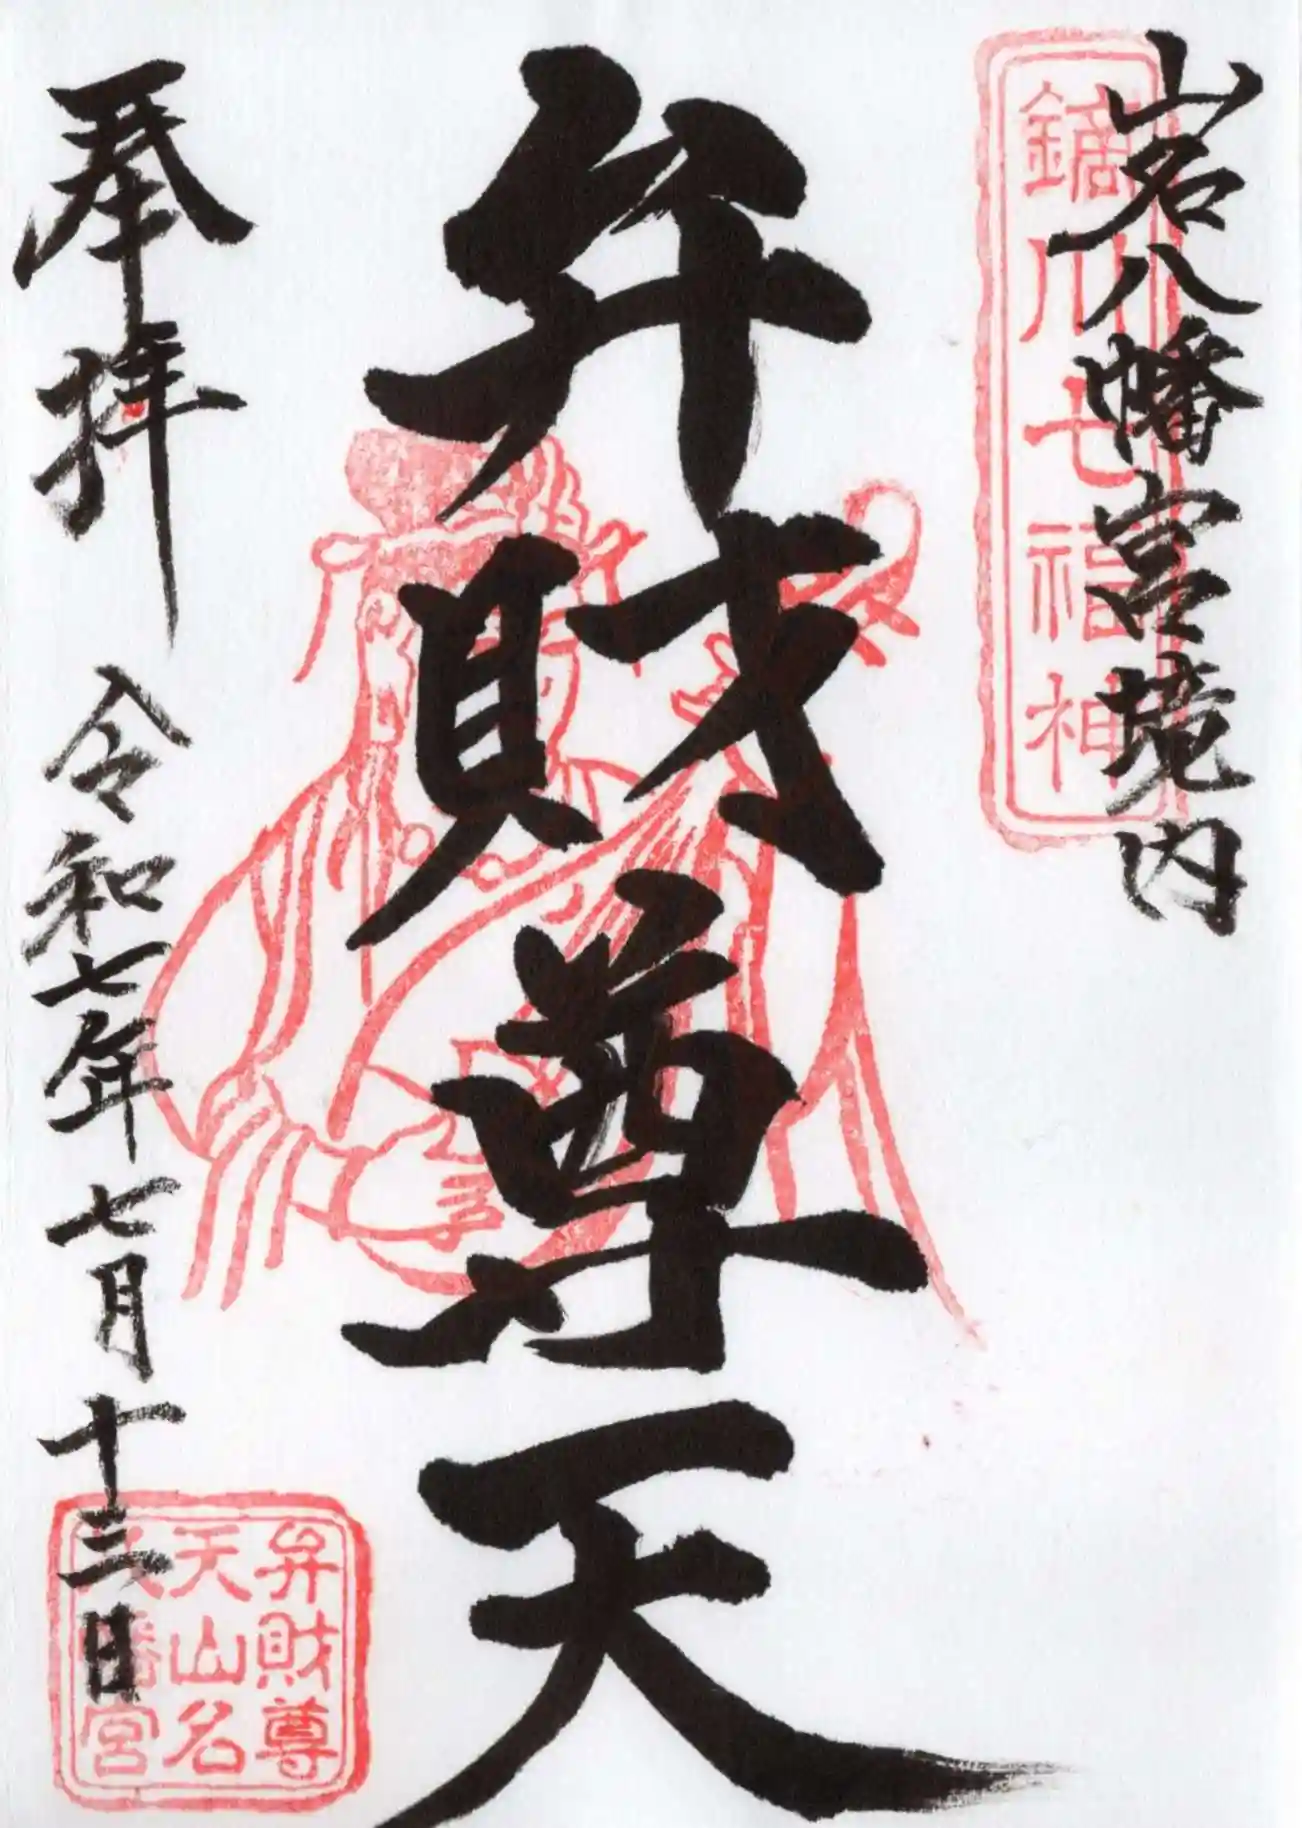 山名八幡宮境内
鏑川七福神
弁財尊天
奉拝
令和七年七月十三日
弁財尊
天山名
八幡宮